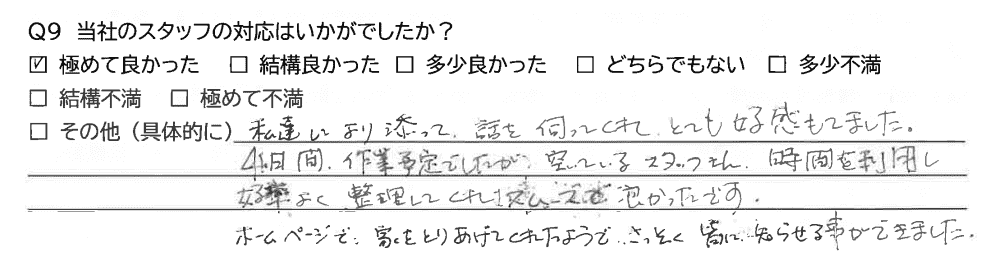 Q9 当社のスタッフの対応はいかがでしたか？
☑ 極めて良かった □ 結構良かった □ 多少良かった □ どちらでもない □ 多少不満
□ 結構不満 □ 極めて不満
□ その他（具体的に）私達により添って、話を伺ってくれ、とても好感もてました。
4日間、作業予定でしたが、空いているスタッフさん、時間を利用し
よく整理してくれ 良かったです。
ホームページで、家をとりあげてくれたようで、さっそく皆に知らせる事ができました。